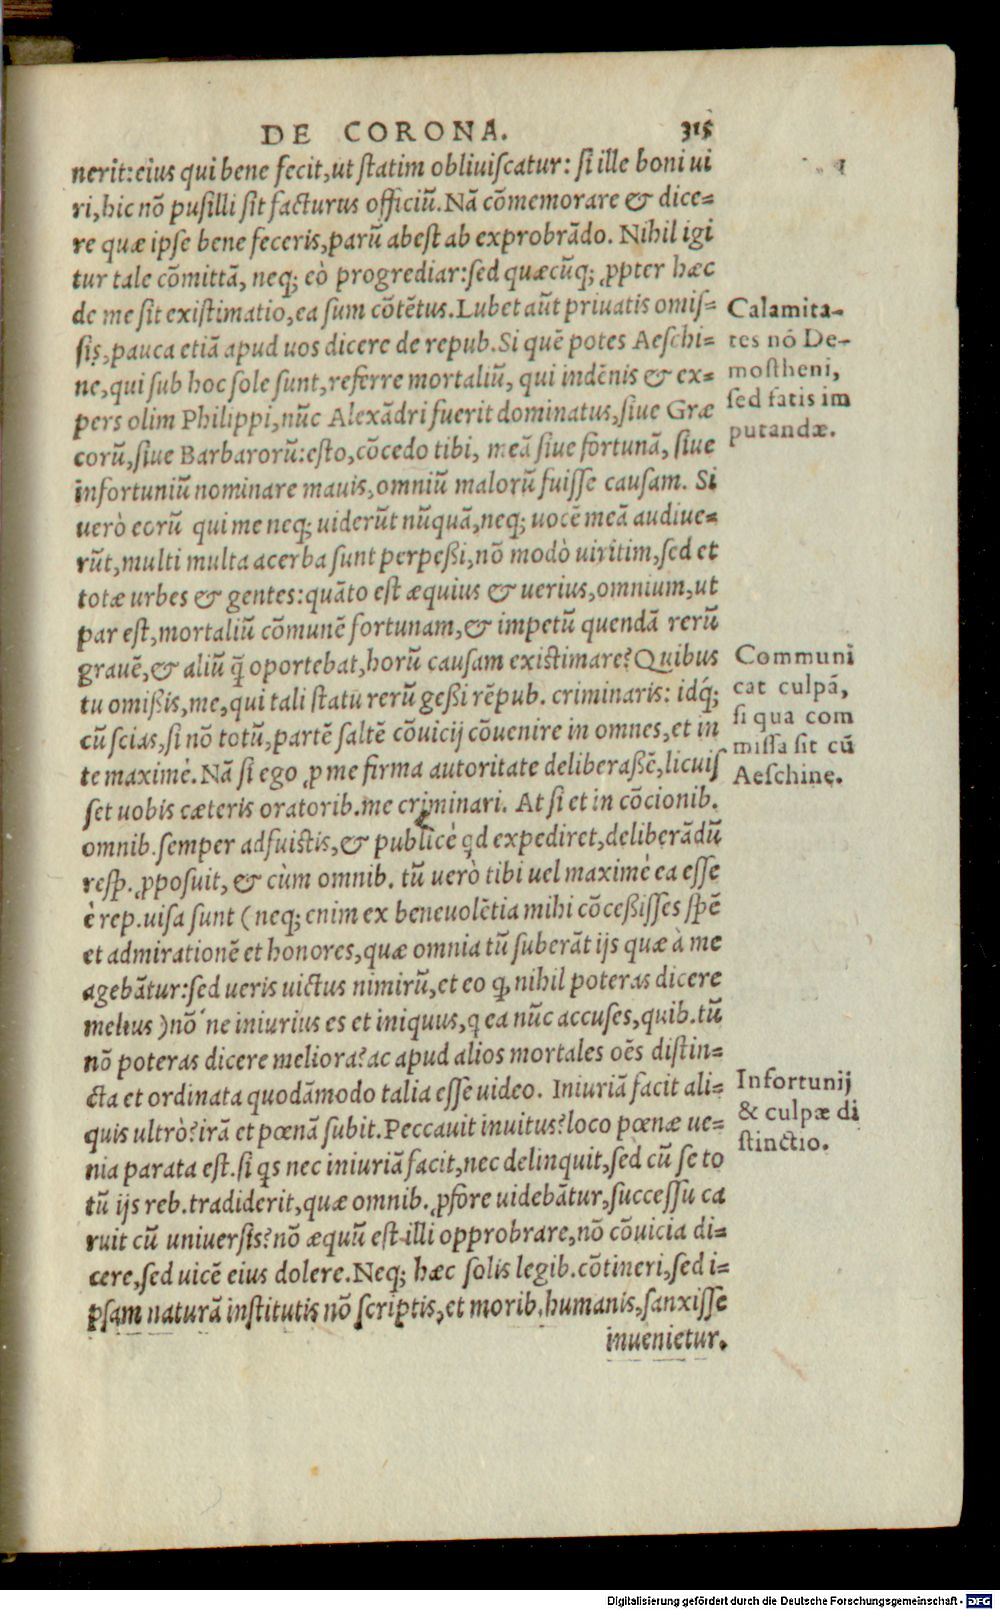 DE CORONA. 315
nerit:eius qui bene fecit,ut ſtatim obliuiſcatur: ſi ille boni ui
ri,hic nõ puſilli ſit facturus officiũ.Nã cõmemorare & dice=
re quæ ipſe bene feceris,parũ abeſt ab exprobrãdo. Nihil igi
tur tale cõmittã, neq; eò progrediar:ſed quæcũq; ꝓpter hæc
de me ſit exiſtimatio,ea ſum cõtẽtus.Lubet aũt priuatis omiſ=
ſis,pauca etiã apud uos dicere de repub.Si quẽ potes Aeſchi=
ne,qui ſub hoc ſole ſunt,referre mortaliũ, qui indẽnis & ex=
pers olim Philippi,nũc Alexãdri fuerit dominatus,ſiue Græ
corũ,ſiue Barbarorũ:eſto,cõcedo tibi, meã ſiue fortunã, ſiue
infortuniũ nominare mauis,omniũ malorũ fuiſſe cauſam. Si
uerò eorũ qui me neq; uiderũt nũquã,neq; uocẽ meã audiue=
rũt,multi multa acerba ſunt perpeßi,nõ modò uiritim,ſed et
totæ urbes & gentes:quãto eſt æquius & uerius,omnium,ut
par eſt,mortaliũ cõmunẽ fortunam,& impetũ quendã rerũ
grauẽ,& aliũ q̃ oportebat,horũ cauſam exiſtimare? Quibus
tu omißis,me,qui tali ſtatu rerũ geßi rẽpub. criminaris: idq́;
cũ ſcias,ſi nõ totũ,partẽ ſaltẽ cõuicij cõuenire in omnes,et in
te maximè.Nã ſi ego ꝓ me firma autoritate deliberaßẽ,licuiſ
ſet uobis cæteris oratorib.me criminari. At ſi et in cõcionib.
omnib.ſemper adfuiſtis,& publicè qd expediret,deliberãdũ
reſp. ꝓpoſuit, & cùm omnib. tũ uerò tibi uel maximè ea eſſe
è rep.uiſa ſunt (neq; enim ex beneuolẽtia mihi cõceßiſſes ſpẽ
et admirationẽ et honores,quæ omnia tũ ſuberãt ijs quæ à me
agebãtur:ſed ueris uictus nimirũ,et eo ꝙ nihil poteras dicere
melius )nõ ne iniurius es et iniquus,q ea nũc accuſes,quib.tũ
nõ poteras dicere meliora?ac apud alios mortales oẽs diſtin=
cta et ordinata quodãmodo talia eſſe uideo. Iniuriã facit ali=
quis ultrò?irã et pœnã ſubit.Peccauit inuitus?loco pœnæ ue=
nia parata eſt.ſi qs nec iniuriã facit,nec delinquit,ſed cũ ſe to
tũ ijs reb.tradiderit,quæ omnib. ꝓfore uidebãtur,ſucceſſu ca
ruit cũ uniuerſis?nõ æquũ eſt illi opprobrare,nõ cõuicia di=
cere,ſed uicẽ eius dolere.Neq; hæc ſolis legib.cõtineri,ſed i=
pſam naturã inſtitutis nõ ſcriptis,et morib.humanis,ſanxiſſe
inuenietur.
Calamita-
tes nõ De-
moſtheni,
ſed fatis im
putandæ.
Communi
cat culpã,
ſi qua com
miſſa ſit cũ
Aeſchine.
Infortunij
& culpæ di
ſtinctio.
Digitalisierung gefördert durch die Deutsche Forschungsgemeinschaft - DFG